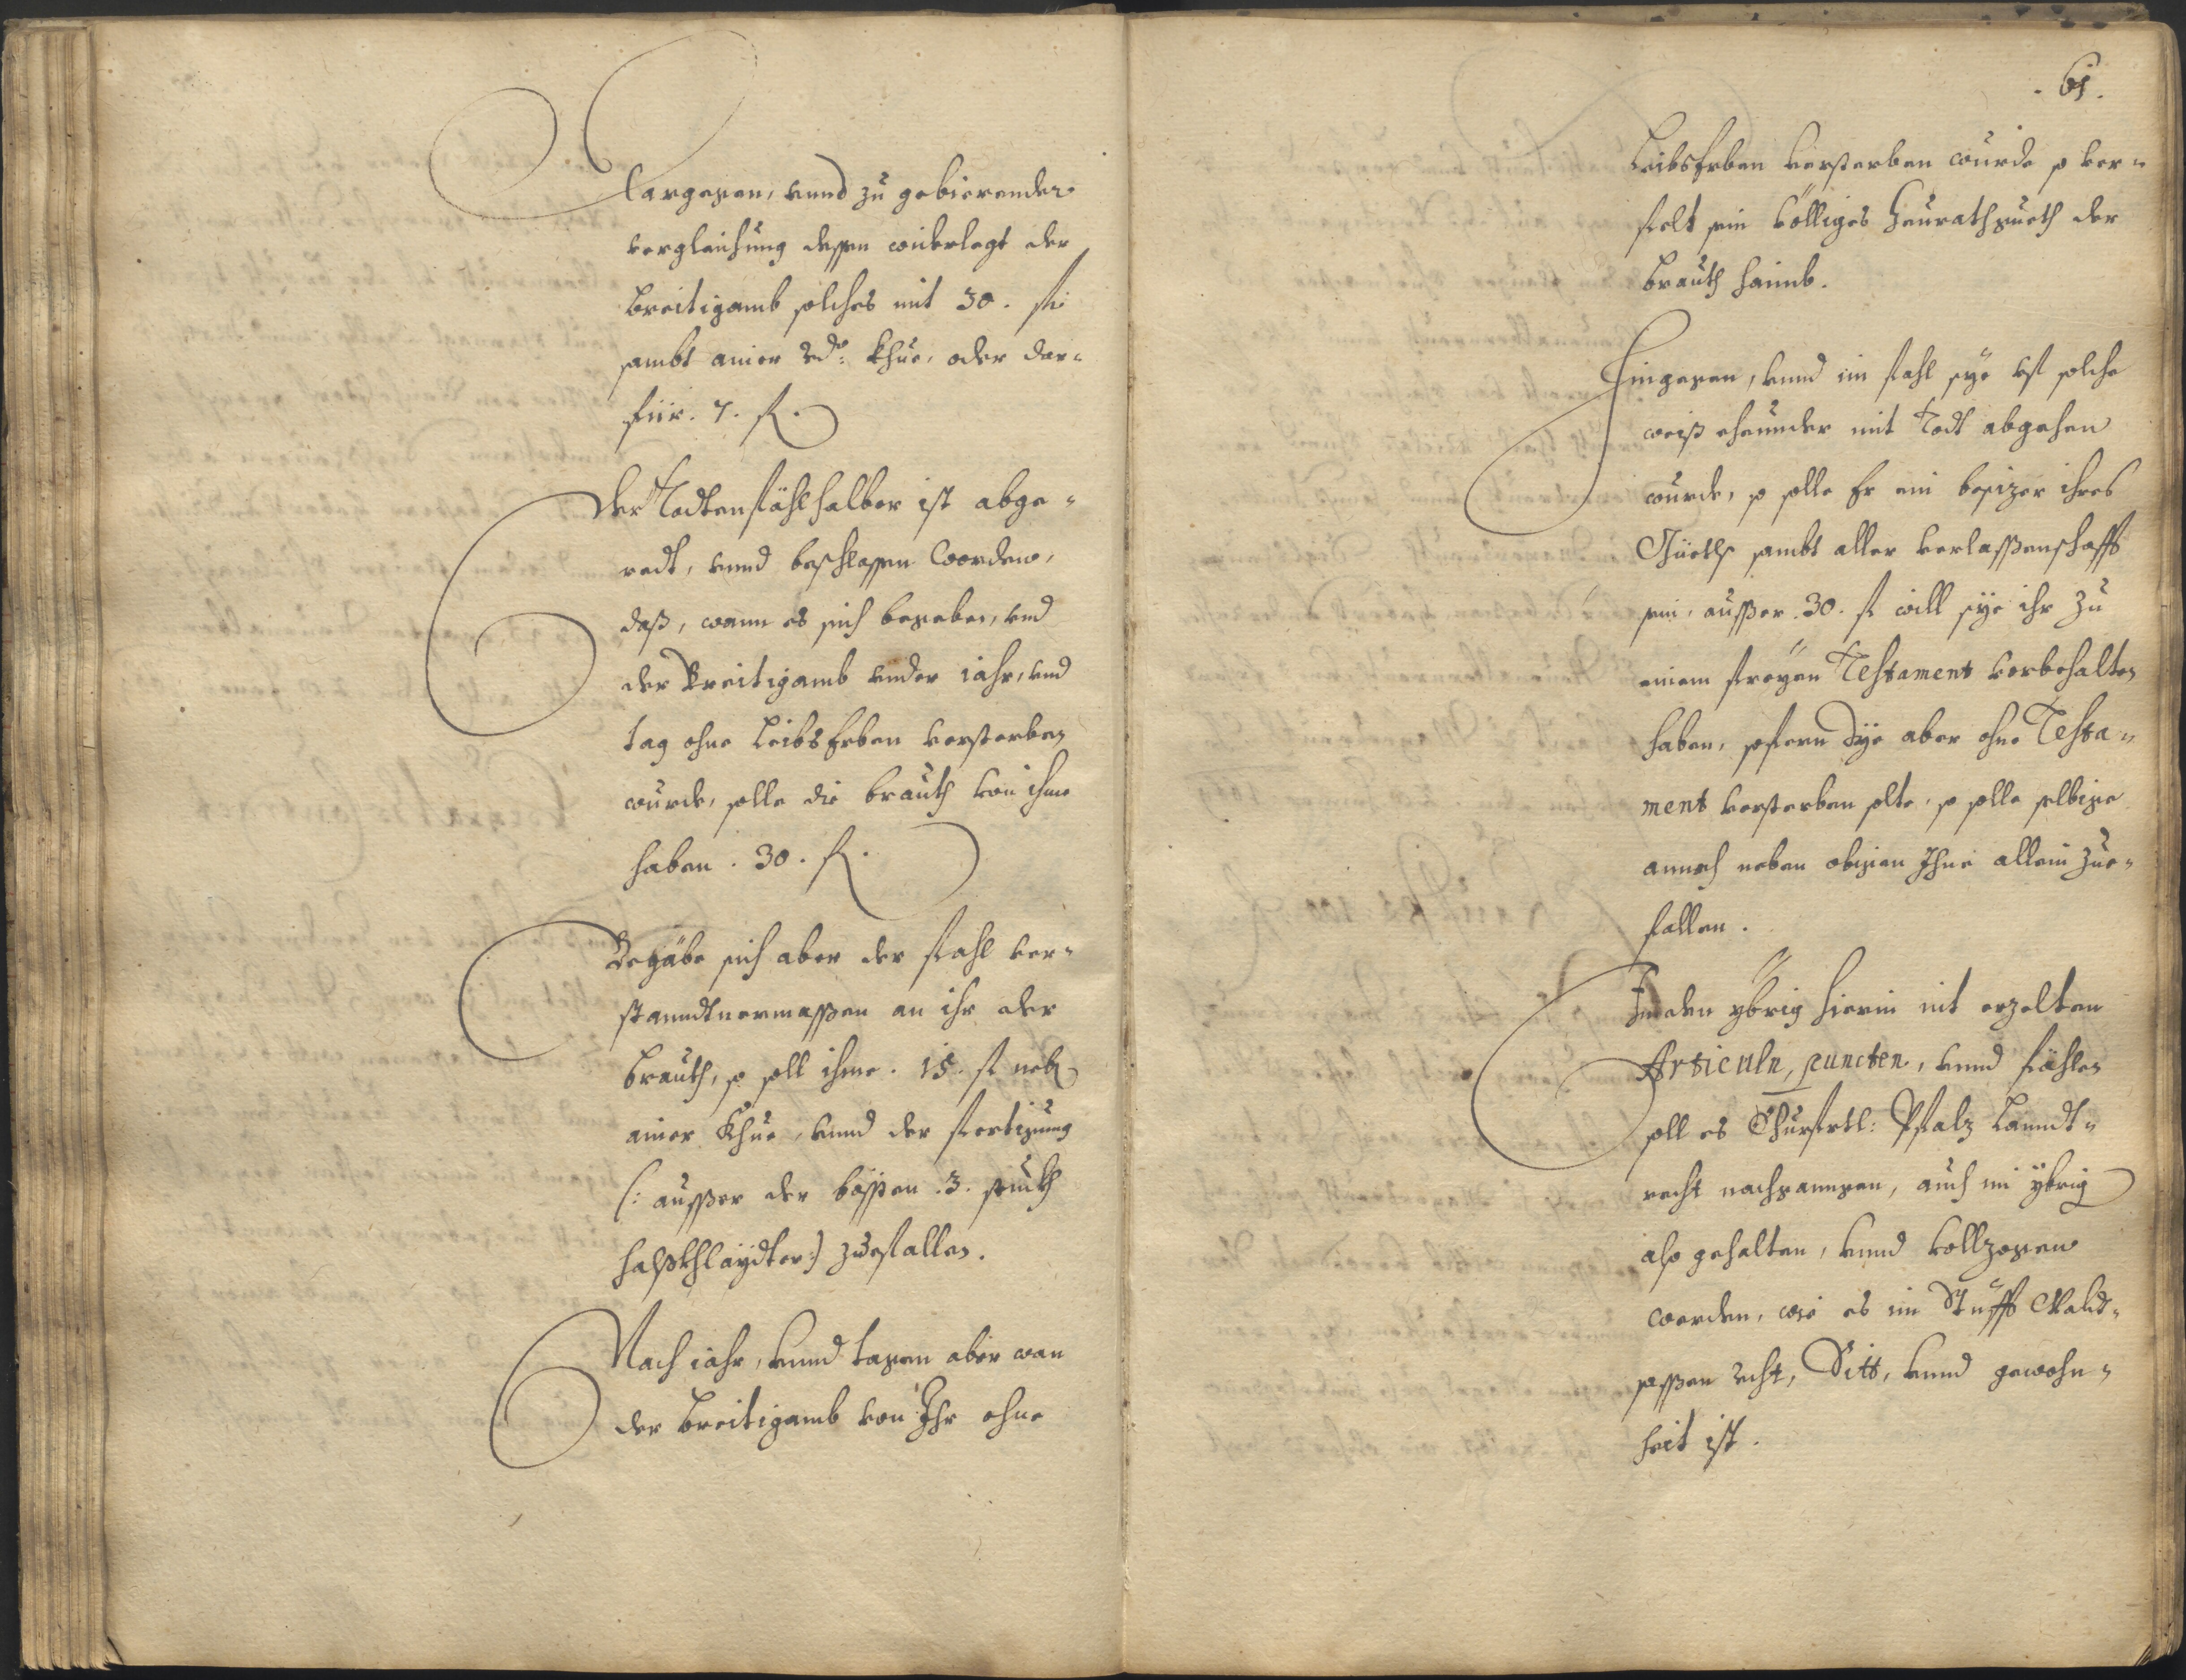 Dargegen, vnnd zu gebierender
vergleichung dessen widerlegt der
Breitigamb solches mit 30. fl
sambt ainer rdo: Khue, oder dar-
für. 7. fl.
Der Todtenfähl halber ist abge-
redt, vnnd beschlossen worden,
daß, wann es sich begeben, vnd
der Breitigamb vnder iahr, vnd
tag ohne LeibsErben versterben
wurde, solle die brauth von ihme
haben. 30. fl.
Begäbe sich aber der fahl ver-
standtnermassen an ihr der
Brauth, so soll ihme. 15. fl neb
ainer Khue, vnnd der fertigung
(: ausser der bössen .3. stukh
halßkhlaydter:) zuefallen.
Nach iahr, vnnd tagen aber wan
der Breitigamb von Ihr ohne
. 61.
LeibsErben versterben wurde so ver-
felt sein völliges Heurathgueth der
Brauth haimb.
Hingegen, vnnd im fahl sye vf solche
weiß ehennder mit Todt abgehen
wurde, so solle Er ein besizer ihres
Güetls sambt aller verlassenschafft
sein, ausser .30. fl will sye ihr zu
einem freyen Testament vorbehalten
haben, sofern Sye aber ohne Testa-
ment versterben solte, so solle selbige
annoch neben obigen Ihme allein zue-
fallen.
In den ybrig hierin nit erzelten
Articuln, puncten, vnnd fählen
soll es Churfrtl: Pfalz Lanndt-
recht nachgangen, auch im ybrig
also gehalten, vnnd vollzogen
werden, wie es im Stüfft Wald-
sassen recht, Sitt, vnnd gewohn-
heit ist.